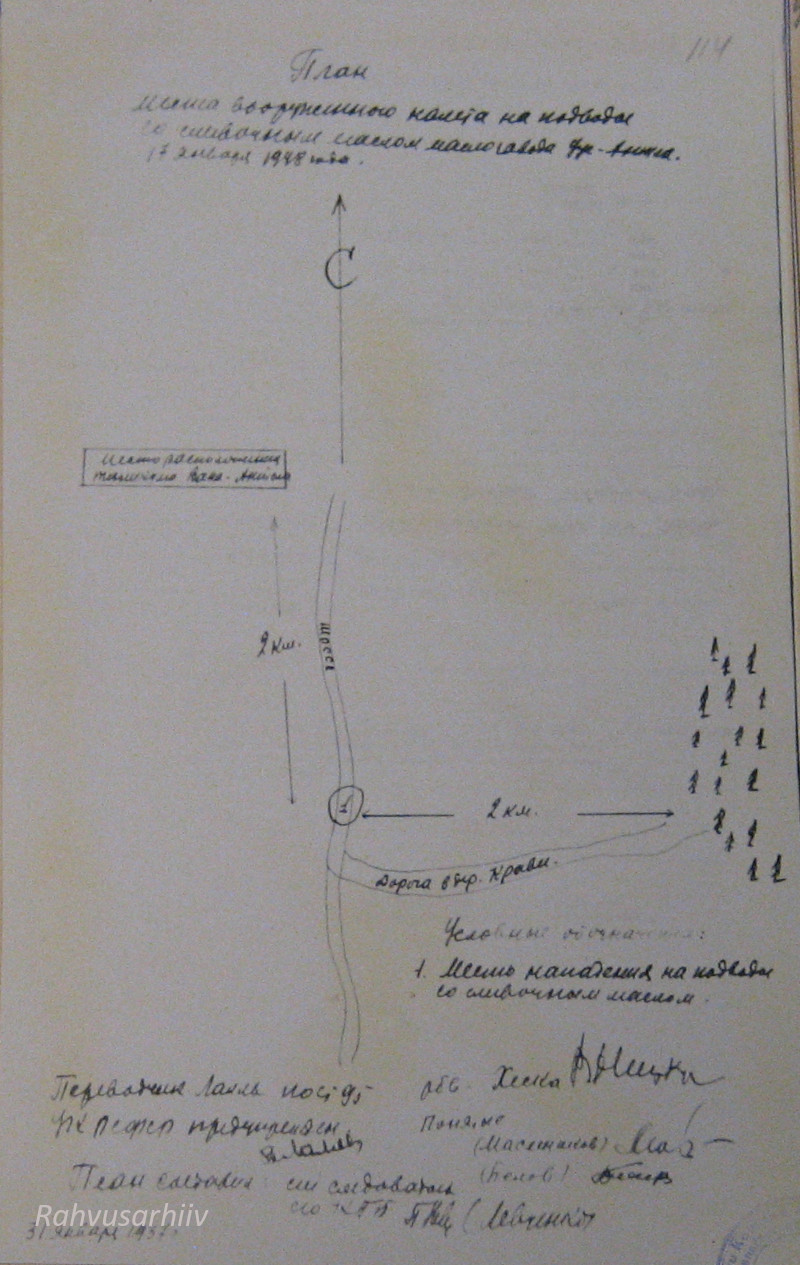 114
План
места вооруженного налета на подводы
со сливочным маслом маслозавода
17 января 1948 года.
С
Место расположения
2 км.
шоссе
1
2 км.
Дорога в дер. Крави.
Условные обозначения:
1. Место нападения на подводы
со сливочным маслом.
Переводчик Лалль по ст 95
УК РСФСР предупрежден.
обв. Хейка
Понятые
(Масленников)
(Белов)
План составил: ст следователь
(Левченко)
Rahvusarhiiv
31 января 1957г.